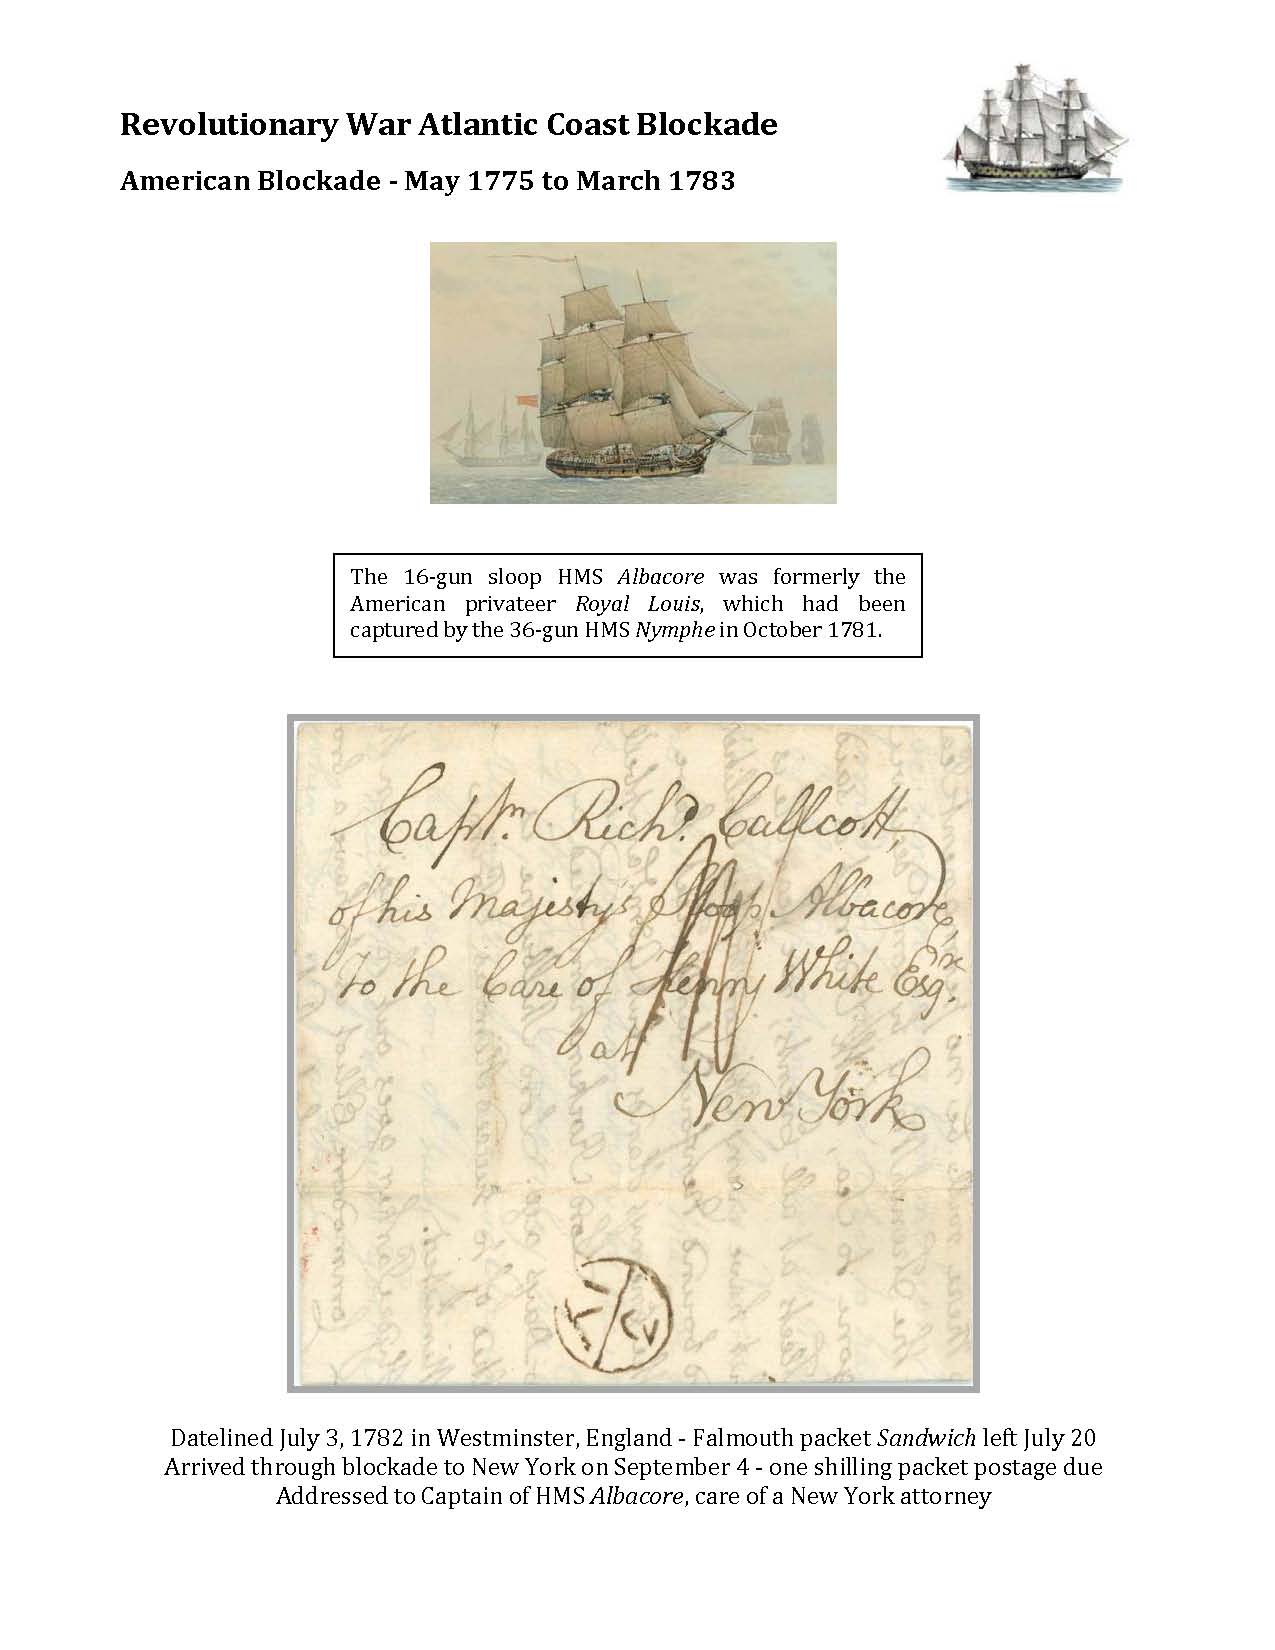 Revolutionary War Atlantic Coast Blockade
American Blockade - May 1775 to March 1783
The 16-gun sloop HMS Albacore was formerly the
American privateer Royal Louis, which had been
captured by the 36-gun HMS Nymphe in October 1781.
Captn. Richd. Callcott,
of his Majesty's Sloop Albacore,
To the Care of Henny White Esqre.
at
New York
Datelined July 3, 1782 in Westminster, England - Falmouth packet Sandwich left July 20
Arrived through blockade to New York on September 4 - one shilling packet postage due
Addressed to Captain of HMS Albacore, care of a New York attorney